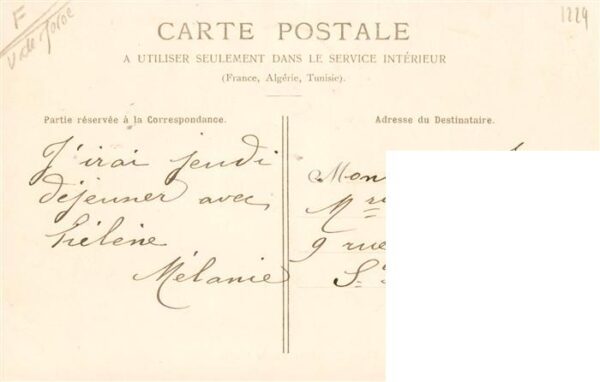 F
1224
CARTE POSTALE
A UTILISER SEULEMENT DANS LE SERVICE INTÉRIEUR
(France, Algérie, Tunisie).
Partie réservée à la Correspondance.
Adresse du Destinataire.
J'irai jeudi
déjeuner avec
Hélène
Mélanie
Mon
Mr
9 rue
St